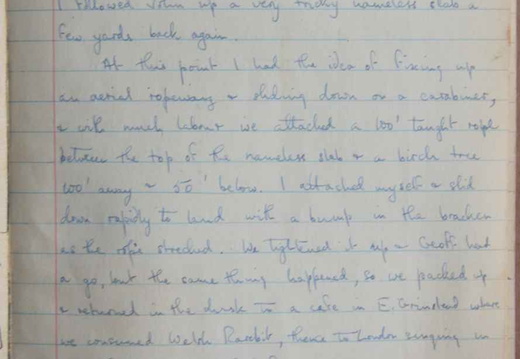 I followed John up a very tricky nameless slab a
few yards back again.
At this point I had the idea of fixing up
an aerial ropeway & sliding down on a carabiner,
& with much labour we attached a 100' taught rope
between the top of the nameless slab & a birch tree
100' away & 50' below. I attached myself & slid
down rapidly to land with a bump in the bracken
as the rope streched. We tightened it up & Geoff had
a go, but the same thing happened, so we packed up
& returned in the dusk to a cafe in E. Grinstead where
we consumed Welsh Rarebit, thence to London singing in